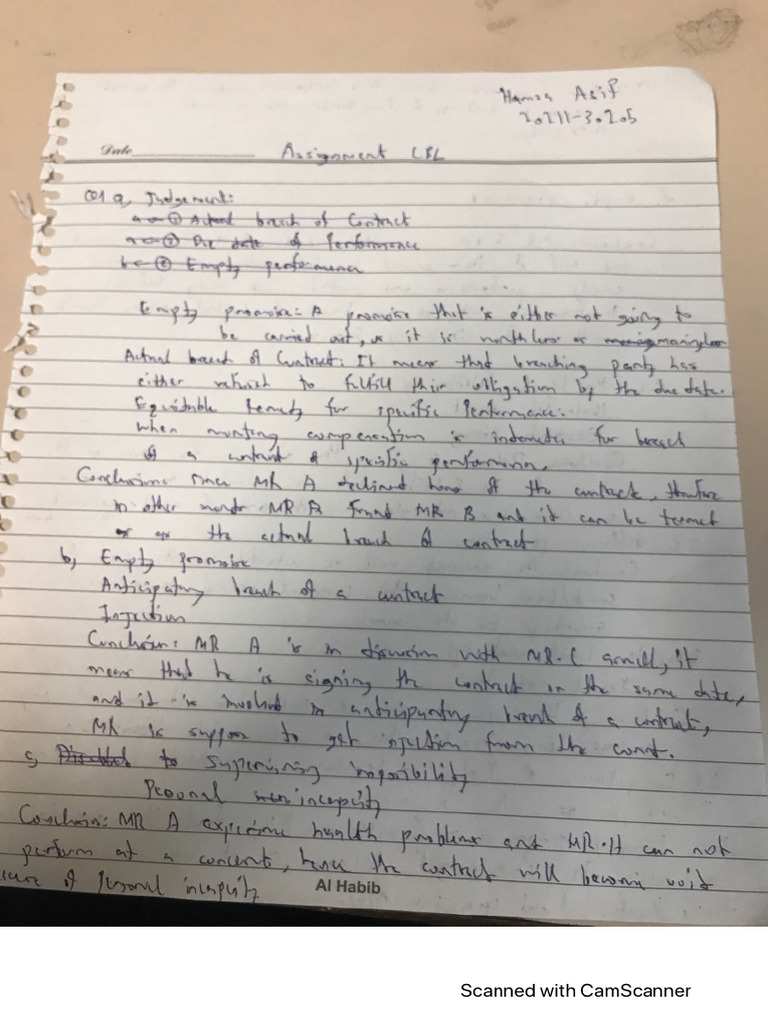 Hamza Asif
20211-30205
Date
Assignment LBL
Q1 a, Judgement:
a ① Actual breach of Contract
a ② Due date of Performance
b ② Empty performance
Empty promise: A promise that is either not going to
be carried out, or it is worthless or
Actual breach of Contract: It means that breaching party has
either refused to fulfill their obligation by the due date.
Equitable Remedy for specific Performance:
When compensation is for breach
of a contract specific performance.
Conclusion: since MR A declined of the contract, therefore
in other words MR B found MR B and it can be termed
or as the actual breach of contract
b, Empty promise
Anticipatory breach of a contract
Injuction
Conclusion: MR A is in discussion with MR. C, it
means that he is signing the contract on the same date,
and it is involved in anticipatory breach of a contract,
MR is suppose to get injuction from the court.
c, to Supervining impossibility
Personal incapacity
Conclusion: MR A health problems and MR. H can not
perform at a concert, hence the contract will become void
of personal incapcity
Al Habib
Scanned with CamScanner